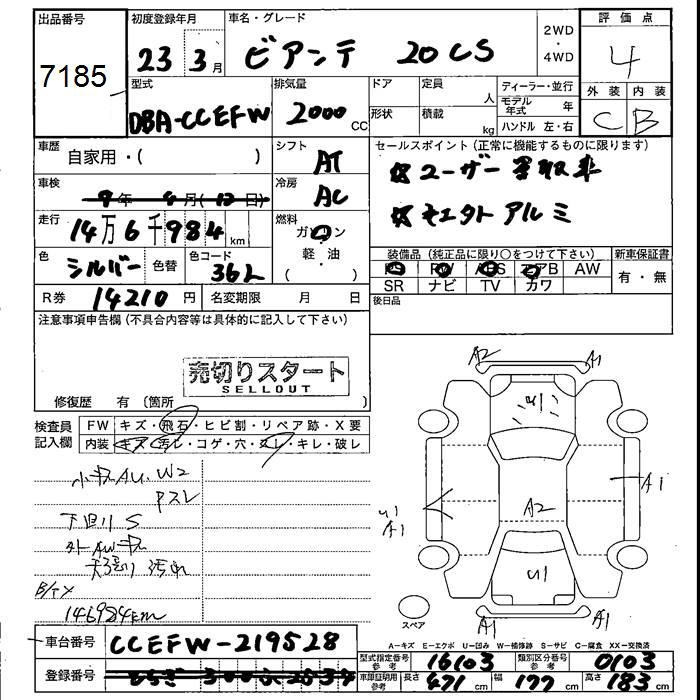 出品番号
7185
初度登録年月
23年 3月
車名・グレード
ビアンテ 20CS
2WD
・
4WD
評価点
4
外装 内装
C B
型式
DBA-CCEFW
排気量
2000 CC
ドア
形状
定員 人
積載 kg
ディーラー・並行
モデル年式 年
ハンドル 左・右
車歴
自家用・( )
シフト
AT
セールスポイント(正常に機能するものに限ります)
☆ユーザー買取車
☆モエタトアルミ
車検
9年 9月(12日)
冷房
AC
走行
14万6千984km
燃料
ガソリン
軽・油
( )
色
シルバー
色替
色コード
36L
装備品(純正品に限り○をつけて下さい)
PS PW ABS エアB AW
SR ナビ TV カワ
新車保証書
有・無
R券 14210円
名変期限 月 日
後日品
注意事項申告欄(不具合内容等は具体的に記入して下さい)
売切りスタート
SELLOUT
修復歴 有(箇所
検査員記入欄
FW キズ・飛石・ヒビ割・リペア跡・X要
内装 キズ・汚レ・コゲ・穴・スレ・キレ・破レ
小キズAU、W2
Pスレ
下回りS
外AWキズ
天張り汚れ
146984km
A2
A1
U1
A1
A2
U1
A1
U1
A1
A1
スペア
A-キズ E-エクボ U-凹み W-補修跡 S-サビ C-腐食 XX-交換済
車台番号 CCEFW-219528
登録番号
型式指定番号 参考 16103
類別区分番号 参考 0103
車庫証明用 参考 長さ 471cm 幅 177cm 高さ 183cm